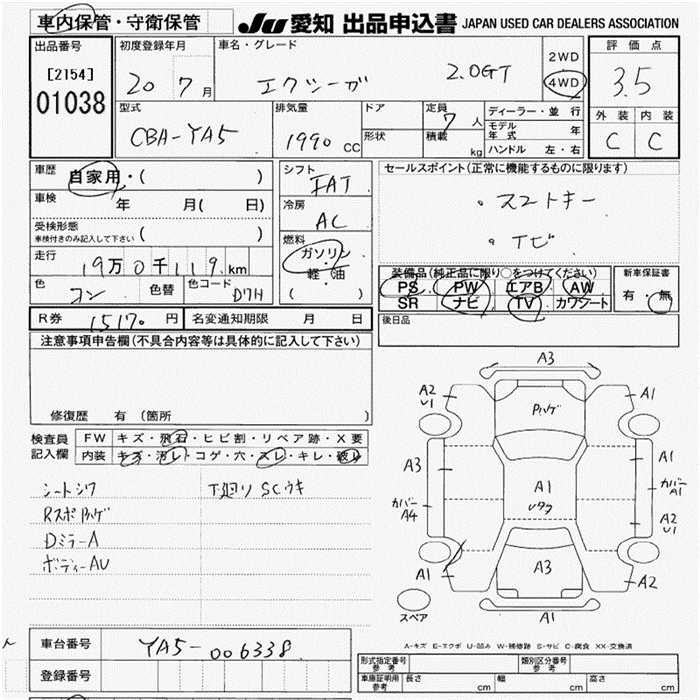 車内保管・守衛保管
JU 愛知 出品申込書 JAPAN USED CAR DEALERS ASSOCIATION
出品番号 初度登録年月 車名・グレード 2WD 評価点
[2154] 20 7月 エクシーガ 2.0GT 4WD 3.5
01038
外装 内装
型式 排気量 ドア 定員 7人 ディーラー・並行
モデル年式 年
CBA-YA5 1990 CC 形状 積載 kg ハンドル 左・右 C C
車歴 自家用・( ) シフト FAT セールスポイント(正常に機能するものに限ります)
車検 年 月( 日) 冷房 AC ・スマートキー
受検形態 ( )
車検付きのみ記入して下さい
燃料 ・ナビ
走行 19万0千119 km ガソリン・軽・油 装備品(純正品に限り○をつけてください) 新車保証書
色 コン 色替 色コード D7H ( ) PS PW エアB AW 有・無
SR ナビ TV カワシート
R券 15170 円 名変通知期限 月 日 後日品
注意事項申告欄(不具合内容等は具体的に記入して下さい)
修復歴 有 (箇所 )
検査員 FW キズ・飛石・ヒビ割・リペア跡・X要
記入欄 内装 キズ・汚レ・コゲ・穴・スレ・キレ・破レ
シートシワ 下廻りSCウキ
Rスポハゲ
DミラーA
ボディーAU
A3
A2 A1
U1
Pハゲ
A3 A1
A1 カバー
A1
カバー
A4
A2
U1
A3
A1 A2
スペア A1
A-キズ E-エクボ U-凹み W-補修跡 S-サビ C-腐食 XX-交換済
車台番号 YA5-006338
登録番号
形式指定番号 参考 類別区分番号 参考
車庫証明用 参考 長さ cm 幅 cm 高さ cm